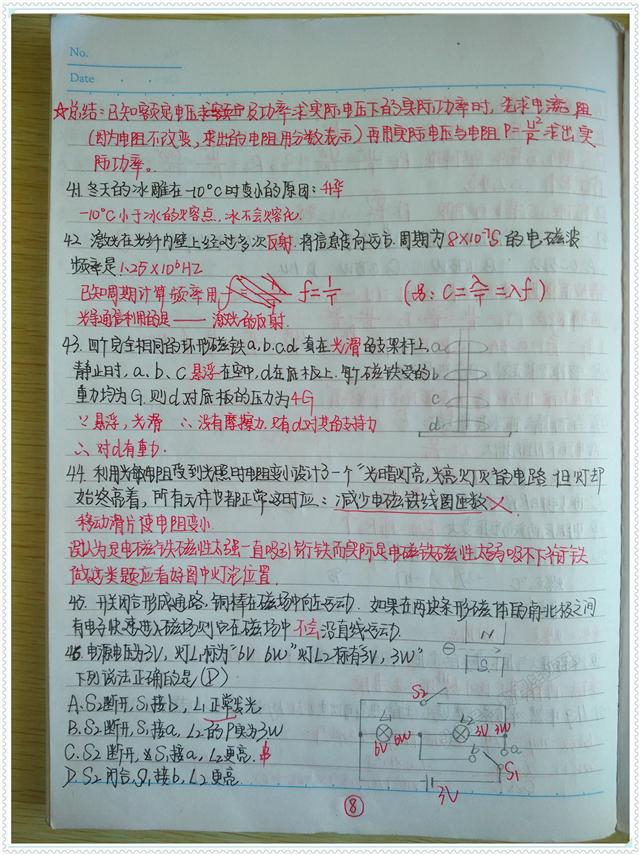 No.
Date
☆总结:已知额定电压求额定及功率求实际电压下的实际功率时,先求电流阻
(因为电阻不改变,求出的电阻用分数表示)再用实际电压与电阻P=U²/R求出实
际功率。
41.冬天的冰雕在-10℃时变小的原因:升华
-10℃小于冰的熔点,水不会熔化.
42.激光在光纤内壁上经过多次反射,将信息传向远方.周期为8×10⁻⁷S的电磁波
频率是1.25×10⁶HZ
已知周期计算频率用 f=1/T (另:C=λ/T=λf)
光纤通信利用的是——激光的反射.
43.四个完全相同的环形磁铁a.b.c.d套在光滑的支架杆上,
静止时,a、b、c悬浮在空中,d在底板上.每个磁铁受的
重力均为G.则d对底板的压力为4G
∵悬浮,光滑 ∴没有摩擦力.只有d对其的支持力
∴对d有重力.
44.利用光敏电阻受到光照时电阻变小设计了一个"光暗灯亮,光亮灯灭"的电路.但灯却
始终亮着,所有元件也都正常这时应:减少电磁铁线圈匝数×
移动滑片使电阻变小
误认为是电磁铁磁性太强一直吸引衔铁而实际是电磁铁磁性太弱吸不下衔铁
做这类题应看好图中灯泡位置.
45.开关闭合形成通路,铜棒在磁场中向左运动.如果在两块条形磁体的南北极之间
有电子快速进入磁场则它在磁场中不会沿直线运动.
46.电源电压为3V,灯L1标为"6V 6W"灯L2标有"3V,3W"
下列说法正确的是(D)
A.S2断开,S1接b,L1正常发光
B.S2断开,S1接a,L2的P实为3W
C.S2断开,S1接a,L2更亮.
D.S2闭合,S1接b,L2更亮.
a
b
c
d
N
S
S2
L1
L2
6V 6W
3V 3W
a
b
S1
3V
8